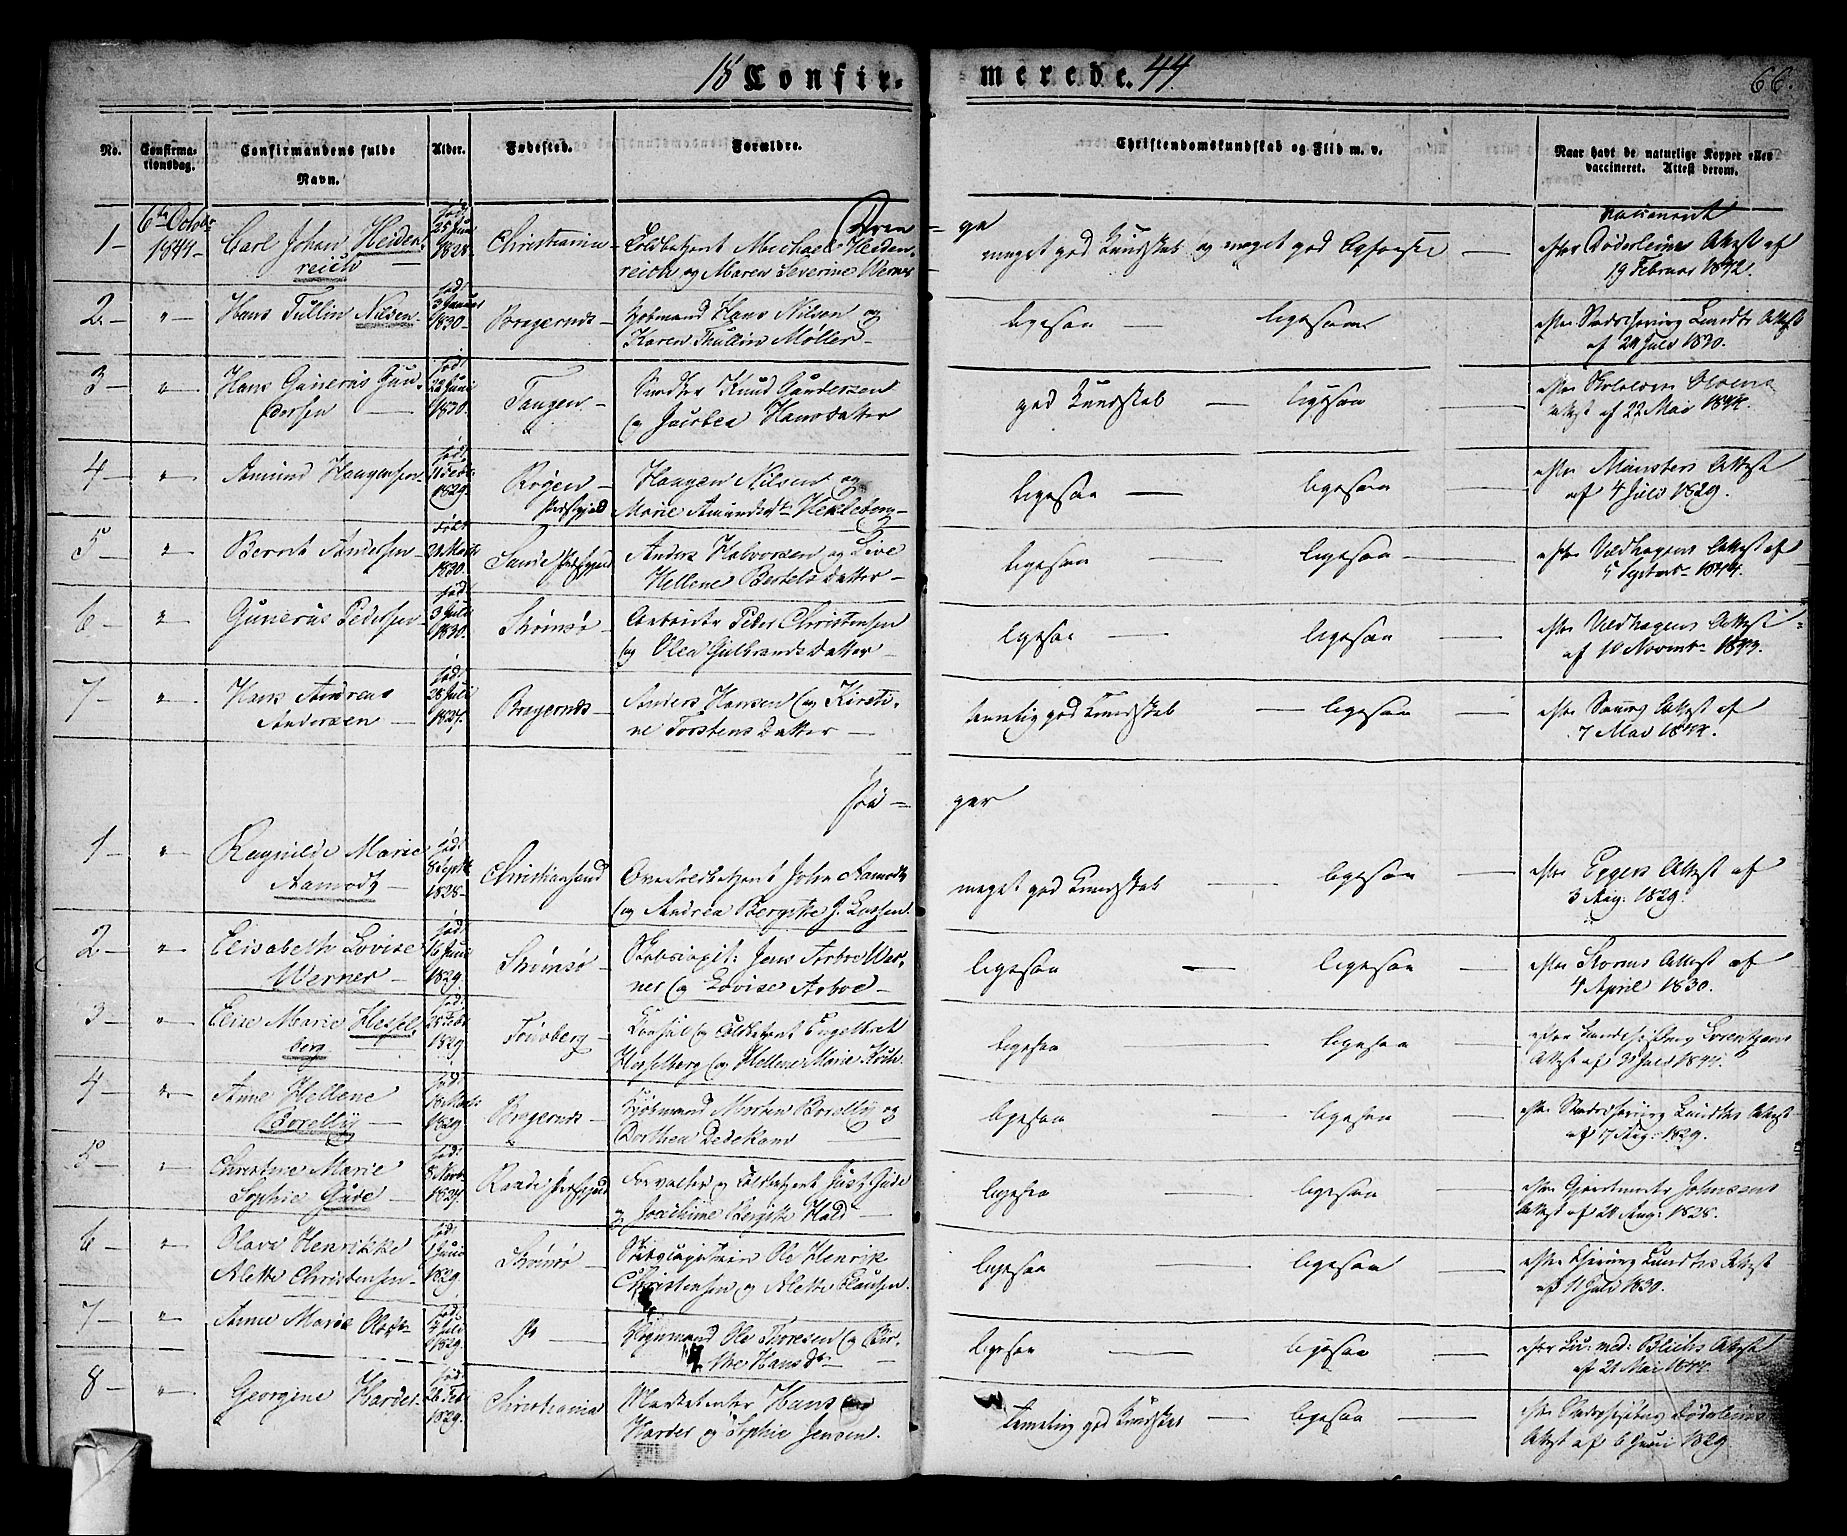 18 Confir-merede. 44. 66.
No. Confirma-tionsdag. Confirmandens fulde Navn. Alder. Fødested. Forældre. Christendomskundskab og Flid m. v. Naar havt de naturlige Kopper eller vaccineret. Attest derom.
Dren-ge
1 6te Octobr 1844 Carl Johan Heiden-reich fød: 25 Juni 1828 Christiania Toldbetjent Michael Heiden-reich og Maren Severine Werner meget god Kundskab og meget god vaccineret efter Döderleins Attest af 19 Februar 1842.
2 " Hans Tullin Nilsen fød: 3 Januar 1830 Bragernæs Kjøbmand Hans Nilsen og Karen Thullin Møller ligesaa ligesaa efter Lundts Attest af 24 Juli 1830.
3 " Hans Gunerus Gun-dersen fød: 22 Juni 1830 Tangen Knud Gundersen og Jacobea Hansdatter god Kundskab ligesaa Attest af 22 Mai 1844.
4 " Amund Haagensen fød: 11 Feb: 1829 Røgen Præstegjæld Haagen Nilsen og Marie Amundsdr Hekleberg ligesaa ligesaa efter Münsters Attest af 4 Juli 1829.
5 " Bernt Andersen født 24 Marts 1830 Sande Præstegjæld Anders Halvorsen og Live Hellene Bertels Datter ligesaa ligesaa efter Uldhagens Attest af 5 Septembr 1844.
6 " Gunerus Pedersen fød: 3 Juli 1830 Strømsø Arbeider Peder Christensen og Olea Gulbrands Datter ligesaa ligesaa efter Uldhagens Attest af 10 Novembr 1843.
7 " Hans Andreas Andersen fød: 28 Juli 1829. Bragernæs Anders Hansen og Kirsti-ne Torstens Datter temelig god Kundskab ligesaa Attest af 7 Mai 1844.
Pi-ger
1 " Ragnilde Marie Aamodt fød: 8 Septbr 1828 Christiansand Overtoldbetjent John Aamodt og Andrea Bergitte J. Lassen. meget god Kundskab ligesaa efter Eggers Attest af 3 Aug: 1829.
2 " Elisabeth Lovise Werner fød: 16 Juni 1829 Strømsø Jens Arboe Wer-ner og Lovise Arboe ligesaa ligesaa efter Storms Attest af 4 April 1830.
3 " Elise Marie Hessel-berg fød: 25 Feb: 1829 Tønsberg Consul og Toldbetjent Engelbret Hesselberg og Hellene Marie ligesaa ligesaa Attest af 3 Juli 1844.
4 " Anne Hellene Borelly fød: 1829 Bragernæs Kjøbmand Morten Borelly og Dorthea Dedekam ligesaa ligesaa efter Lundts Attest af 7 Aug: 1829.
5 " Christine Marie Sophie Gude fød: 8 Raade Præstegjæld Forvalter og Toldbetjent Just Gude og Joachime Bergitte Hald ligesaa ligesaa efter Johnsens Attest af 24 Aug: 1828.
6 " Olava Henrikke Alette Christensen fød: 1 Juni 1829 Strømsø Ole Henrik Christensen og Alette Clausen. ligesaa ligesaa efter Lundts Attest af 11 Juli 1830.
7 " Anne Marie fød: Juli 1829. Do Ole Thoresen og Hans Dr ligesaa ligesaa efter Blichs Attest af 21 Mai 1844.
8 " Georgine Harder fød: 26 Feb: 1829. Christiania Marketenter Hans Harder og Sophie Jensen. temelig god Kundskab ligesaa efter Döderleins Attest af 6 Juni 1829